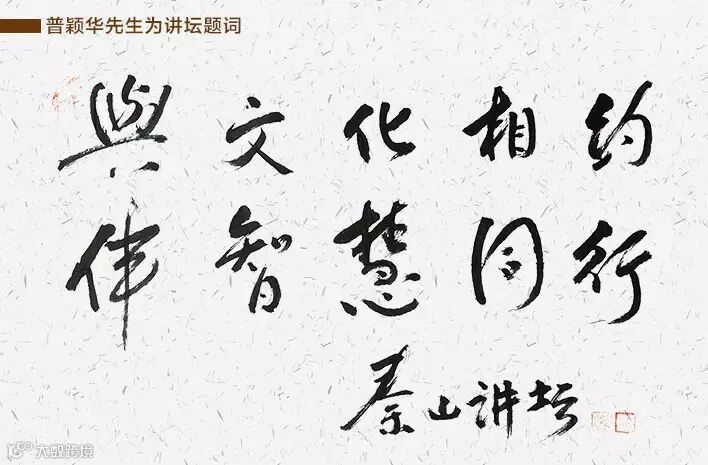 普颖华先生为讲坛题词
與文化相约
伴智慧同行
秦山讲坛
大数跨境